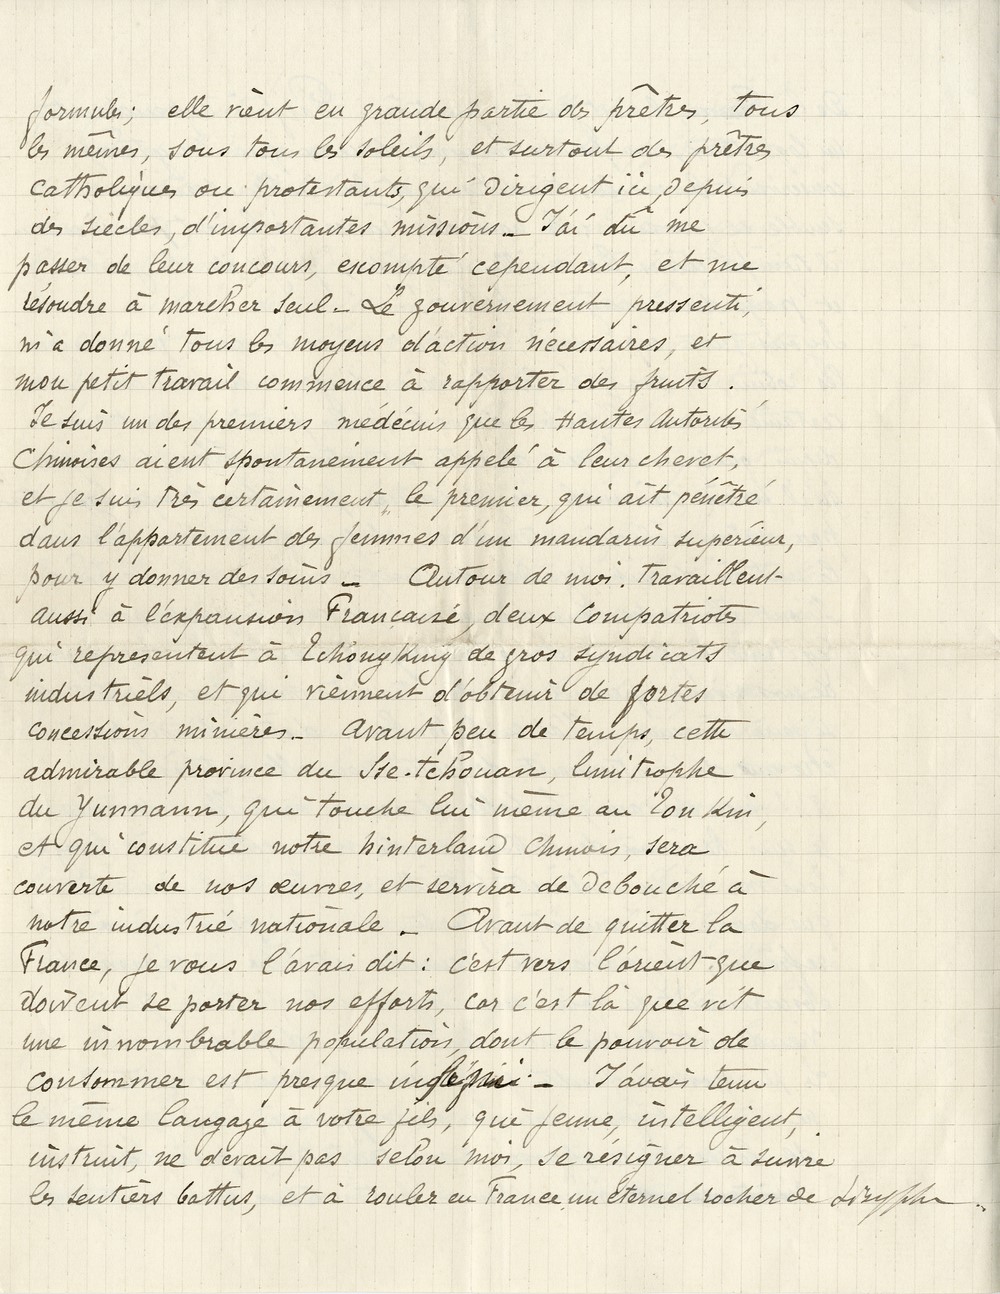 formules; elle vient en grande partie des prêtres, tous
les mêmes, sous tous les soleils, et surtout des prêtres
catholiques ou protestants, qui dirigent ici, depuis
des siècles, d'importantes missions_ J'ai dû me
passer de leur concours, escompté cependant, et me
résoudre à marcher seul_ Le gouvernement pressenti,
m'a donné tous les moyens d'action nécessaires, et
mon petit travail commence à rapporter des fruits.
Je suis un des premiers médécins que les Hautes Autorités
Chinoises aient spontanément appelé à leur chevet,
et je suis très certainement, le premier, qui ait pénétré
dans l'appartement des femmes d'un mandarin supérieur,
pour y donner des soins_ Autour de moi, travaillent
aussi à l'expansion Française, deux Compatriotes
qui représentent à TchongKing de gros syndicats
industriels, et qui viennent d'obtenir de fortes
concessions minières_ Avant peu de temps, cette
admirable province du Sse-tchouan, limitrophe
du Yunnann, qui touche lui même au TonKin,
et qui constitue notre hinterland chinois, sera
couverte de nos œuvres, et servira de débouché à
notre industrie nationale_ Avant de quitter la
France, je vous l'avais dit: c'est vers l'orient que
doivent se porter nos efforts, car c'est là que vit
une innombrable population, dont le pouvoir de
consommer est presque indéfini_ J'avais tenu
le même langage à votre fils, qui jeune, intelligent,
instruit, ne devait pas selon moi, se résigner à suivre
les sentiers battus, et à rouler en France un éternel rocher de Sisyphe_